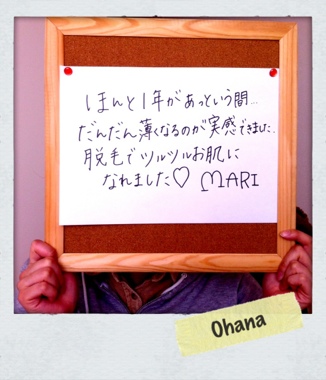 ほんと1年があっという間…
だんだん薄くなるのが実感できました。
脱毛でツルツルお肌に
なれました♡ MARI
Ohana